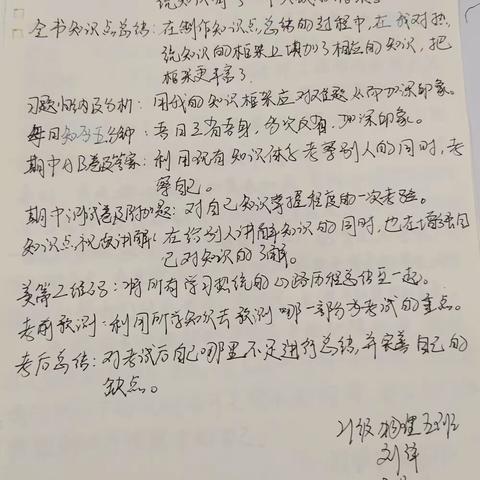 全书知识点总结：在制作知识点总结的过程中，在我对热
统知识的框架上填加了相应的知识，把
框架更丰富了．
习题归纳及分析：用我的知识框架应对难题从而加深印象。
每日知乎五分钟：吾日三省吾身，多次反省，加深印象。
期中AB卷及答案：利用现有知识体系考察别人的同时，考
察自己。
期中测试卷及附加题：对自己知识掌握程度的一次考验。
知识点视频讲解：在给别人讲解知识的同时，也在增强自
己对知识的了解。
美篇二维码：将所有学习热统的心路历程总结在一起。
考前预测：利用所学知识去预测哪一部分为考试的重点。
考后总结：对考试后自己哪里不足进行总结，并完善自己的
缺点。
21级物理五班
刘洋